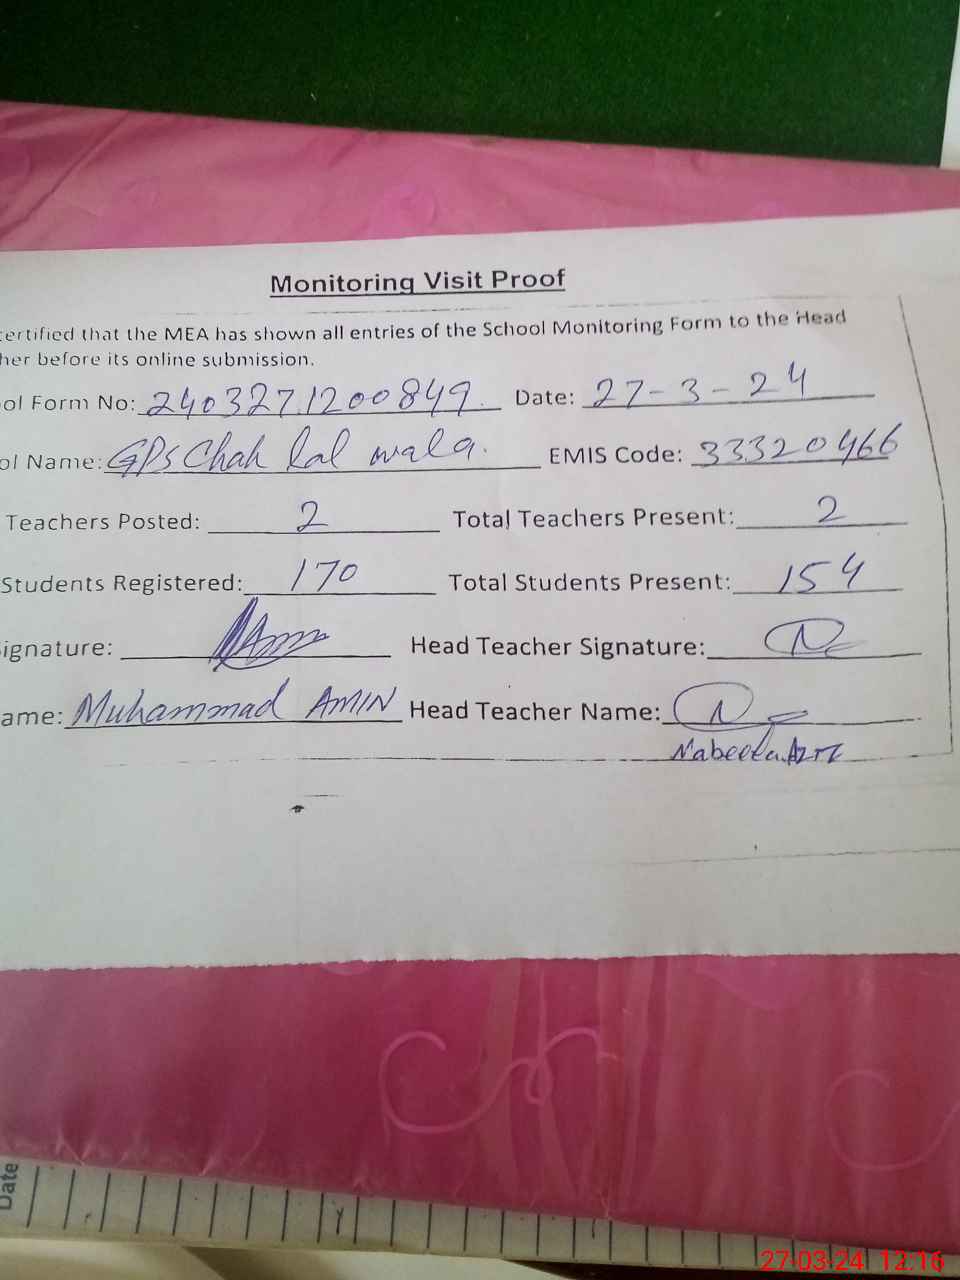 Monitoring Visit Proof
certified that the MEA has shown all entries of the School Monitoring Form to the Head
her before its online submission.
ol Form No: 2403271200849 Date: 27-3-24
ol Name: GPS Chah lal wala. EMIS Code: 33320466
Teachers Posted: 2 Total Teachers Present: 2
Students Registered: 170 Total Students Present: 154
ignature: Head Teacher Signature:
ame: Muhammad AMIN Head Teacher Name:
Date
27-03-24 12:16